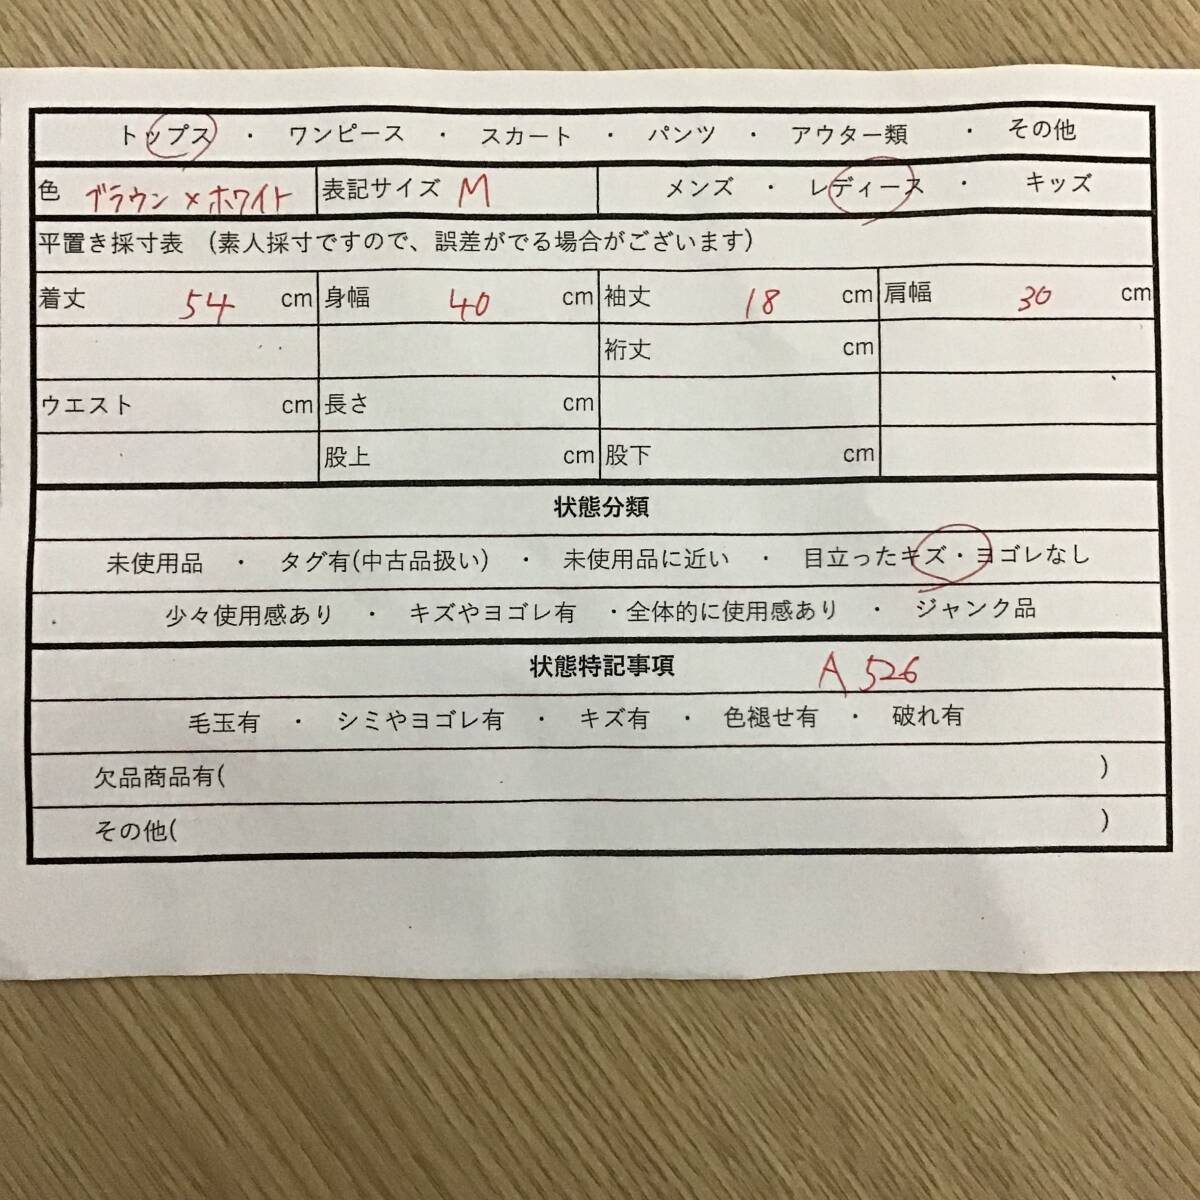 トップス ・ ワンピース ・ スカート ・ パンツ ・ アウター類 ・ その他
色 ブラウン×ホワイト 表記サイズ M メンズ ・ レディース ・ キッズ
平置き採寸表 (素人採寸ですので、誤差がでる場合がございます)
着丈 54 cm 身幅 40 cm 袖丈 18 cm 肩幅 30 cm
裄丈 cm
ウエスト cm 長さ cm
股上 cm 股下 cm
状態分類
未使用品 ・ タグ有(中古品扱い) ・ 未使用品に近い ・ 目立ったキズ・ヨゴレなし
少々使用感あり ・ キズやヨゴレ有 ・全体的に使用感あり ・ ジャンク品
状態特記事項 A526
毛玉有 ・ シミやヨゴレ有 ・ キズ有 ・ 色褪せ有 ・ 破れ有
欠品商品有( )
その他( )